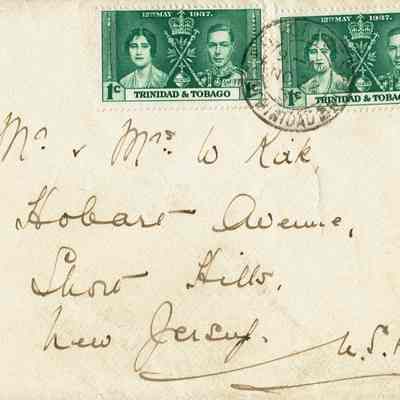 12TH MAY 1937.
1c
TRINIDAD & TOBAGO
12TH MAY 1937.
1c
TRINIDAD & TOBAGO
TRINIDAD
Mr & Mrs W Kirk,
Hobart Avenue,
Short Hills,
New Jersey.
U.S.